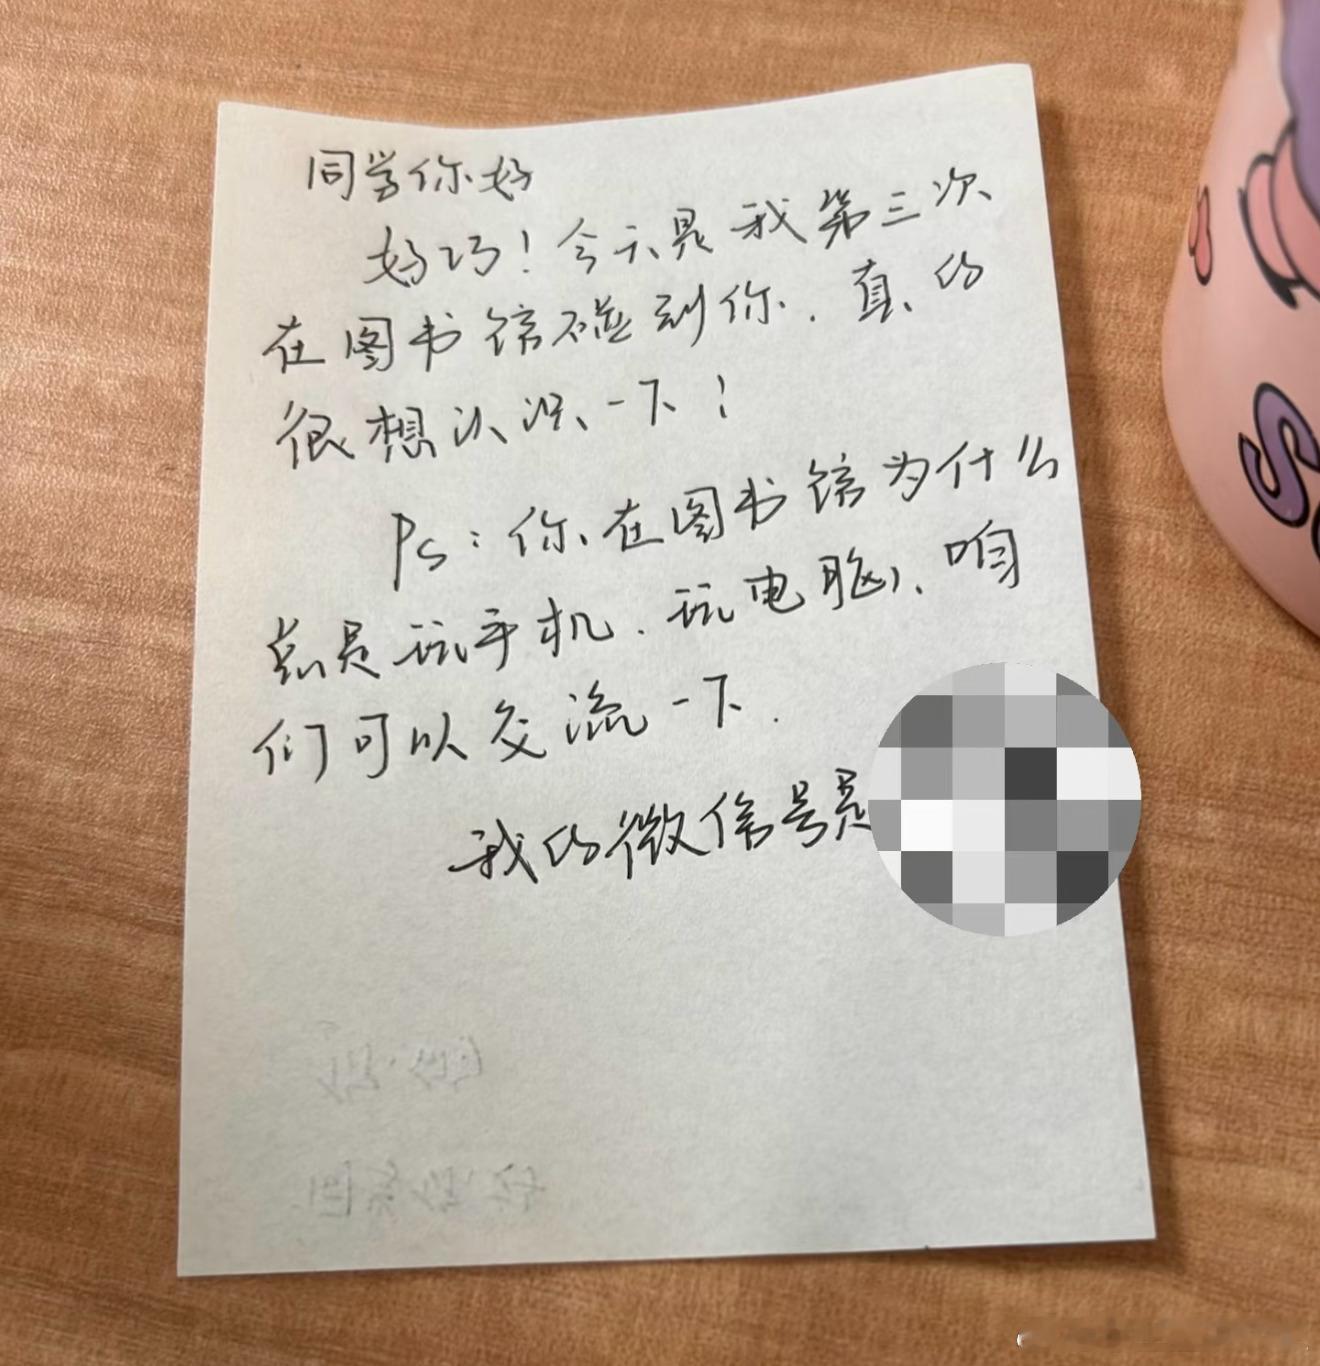 同学你好
好巧！今天是我第三次
在图书馆碰到你．真的
很想认识一下！
Ps：你在图书馆为什么
总是玩手机．玩电脑，咱
们可以交流一下．
我的微信号是
S